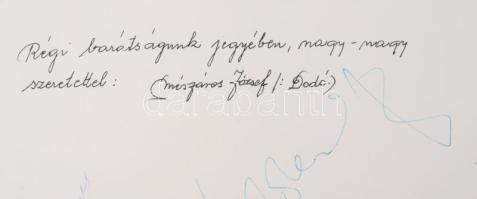 Régi barátságunk jegyében, nagy-nagy
szeretettel: (Mészáros József /: Dodó)
darabanth